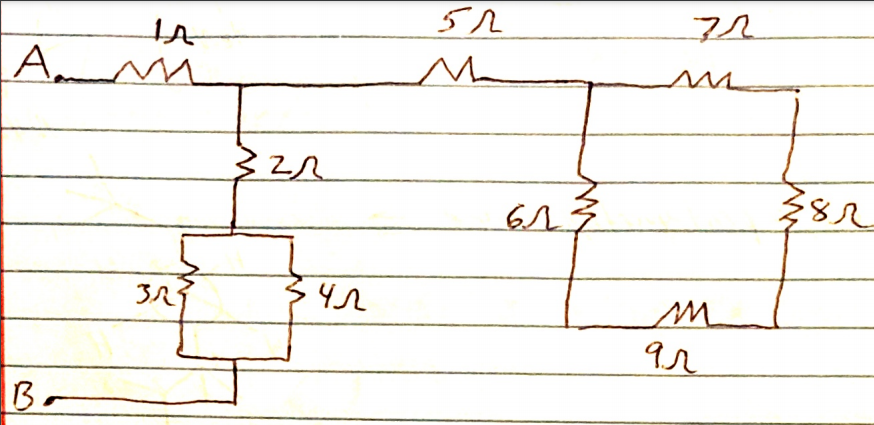 1Ω 5Ω 7Ω
A
2Ω
6Ω 8Ω
3Ω 4Ω
9Ω
B